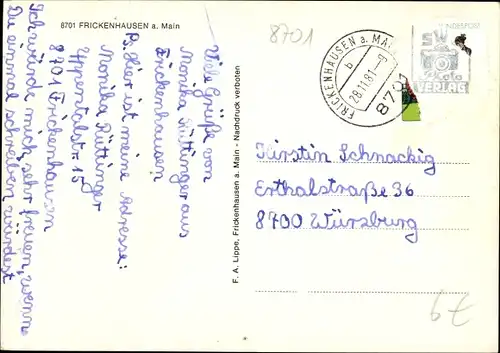 8701 FRICKENHAUSEN a. Main
8701
Viele Grüße von
Monika Rüttinger aus
Frickenhausen
Ps: Hier ist meine Adresse:
Monika Rüttinger
8701 Frickenhausen
Ich würde mich sehr freuen, wenn
Du einmal schreiben würdest
F. A. Lippe, Frickenhausen a. Main - Nachdruck verboten
FRICKENHAUSEN a. MAIN
b
28.11.81-9
8701
VERLAG
Kirstin Schnackig
Erthalstraße 36
8700 Würzburg
79